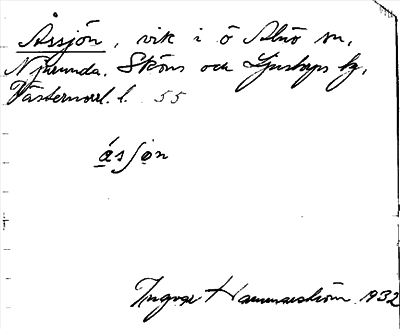 Åssjön, vik i ö Alnö sn,
Njurunda, Sköns och Ljustorps tg,
Västernorrl. l. 55
åsjøn
Ingvar Hammarström 1932